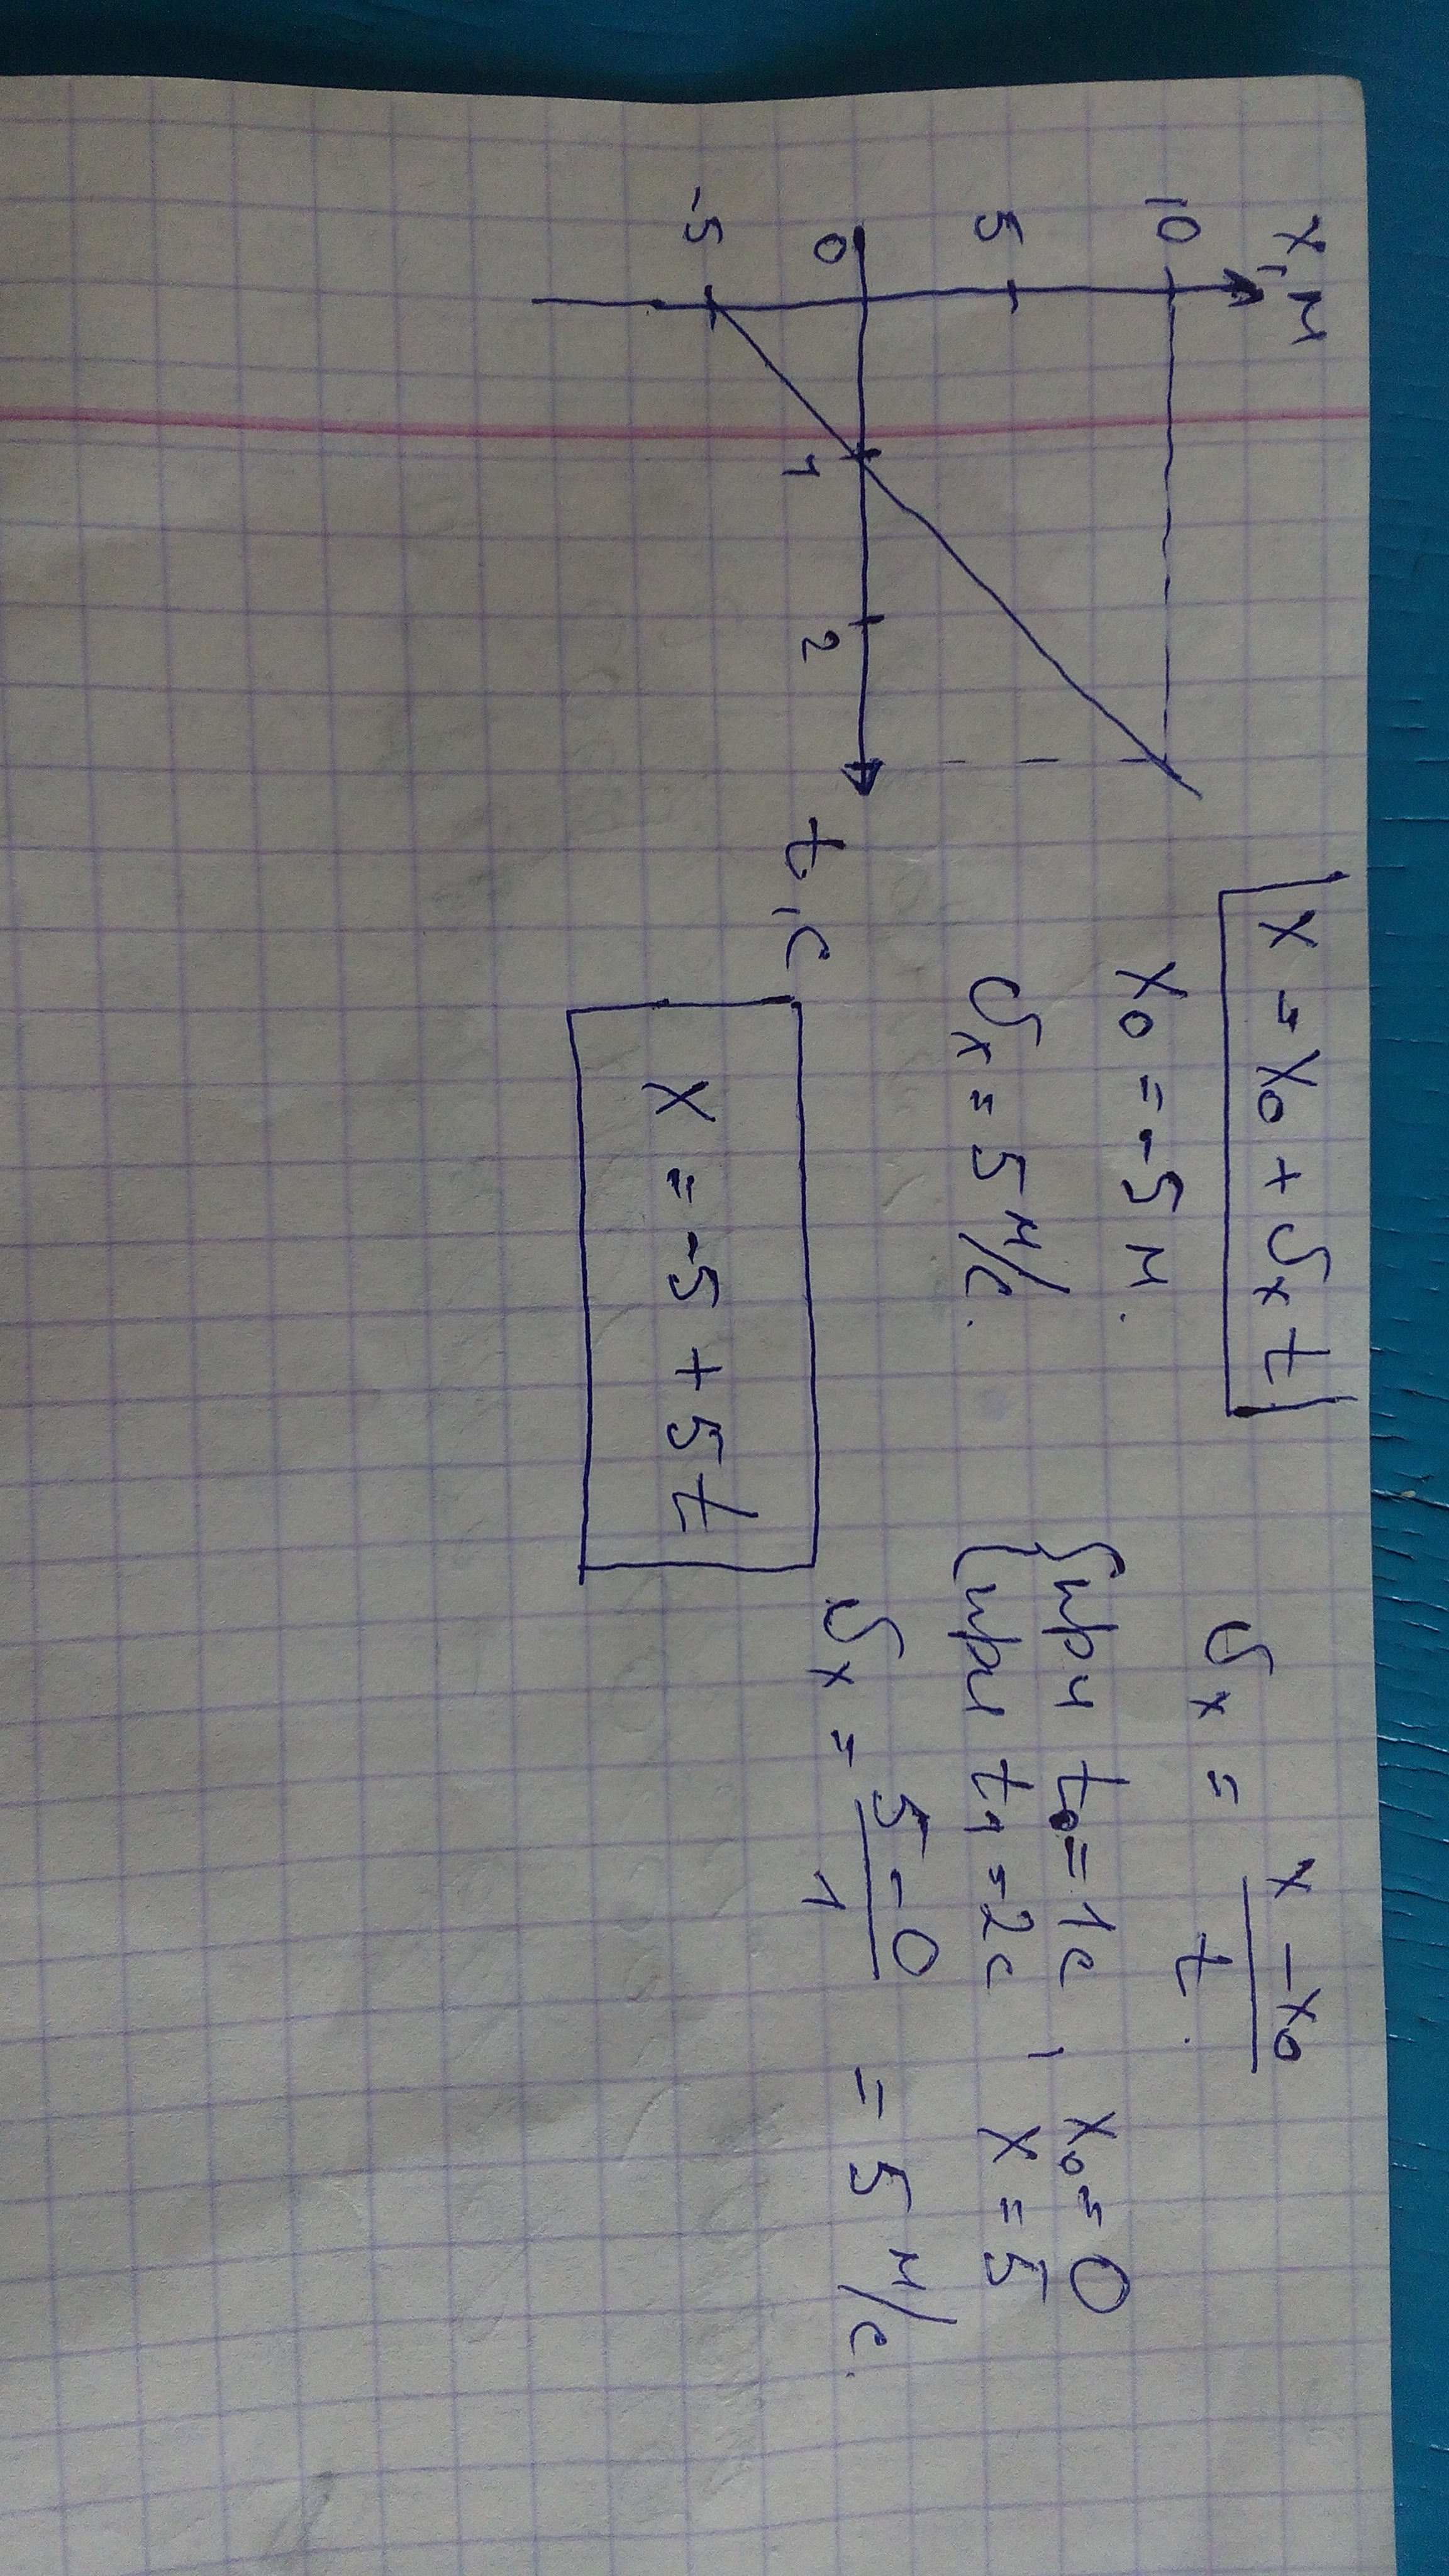 x, м
10
5
0
-5
1
2
t, с
x = x₀ + υₓt
x₀ = -5 м.
υₓ = 5 м/с.
x = -5 + 5t
υₓ = (x - x₀)/t.
{при t₀ = 1с, x₀ = 0
{при t₁ = 2с x = 5
υₓ = (5 - 0)/1 = 5 м/с.